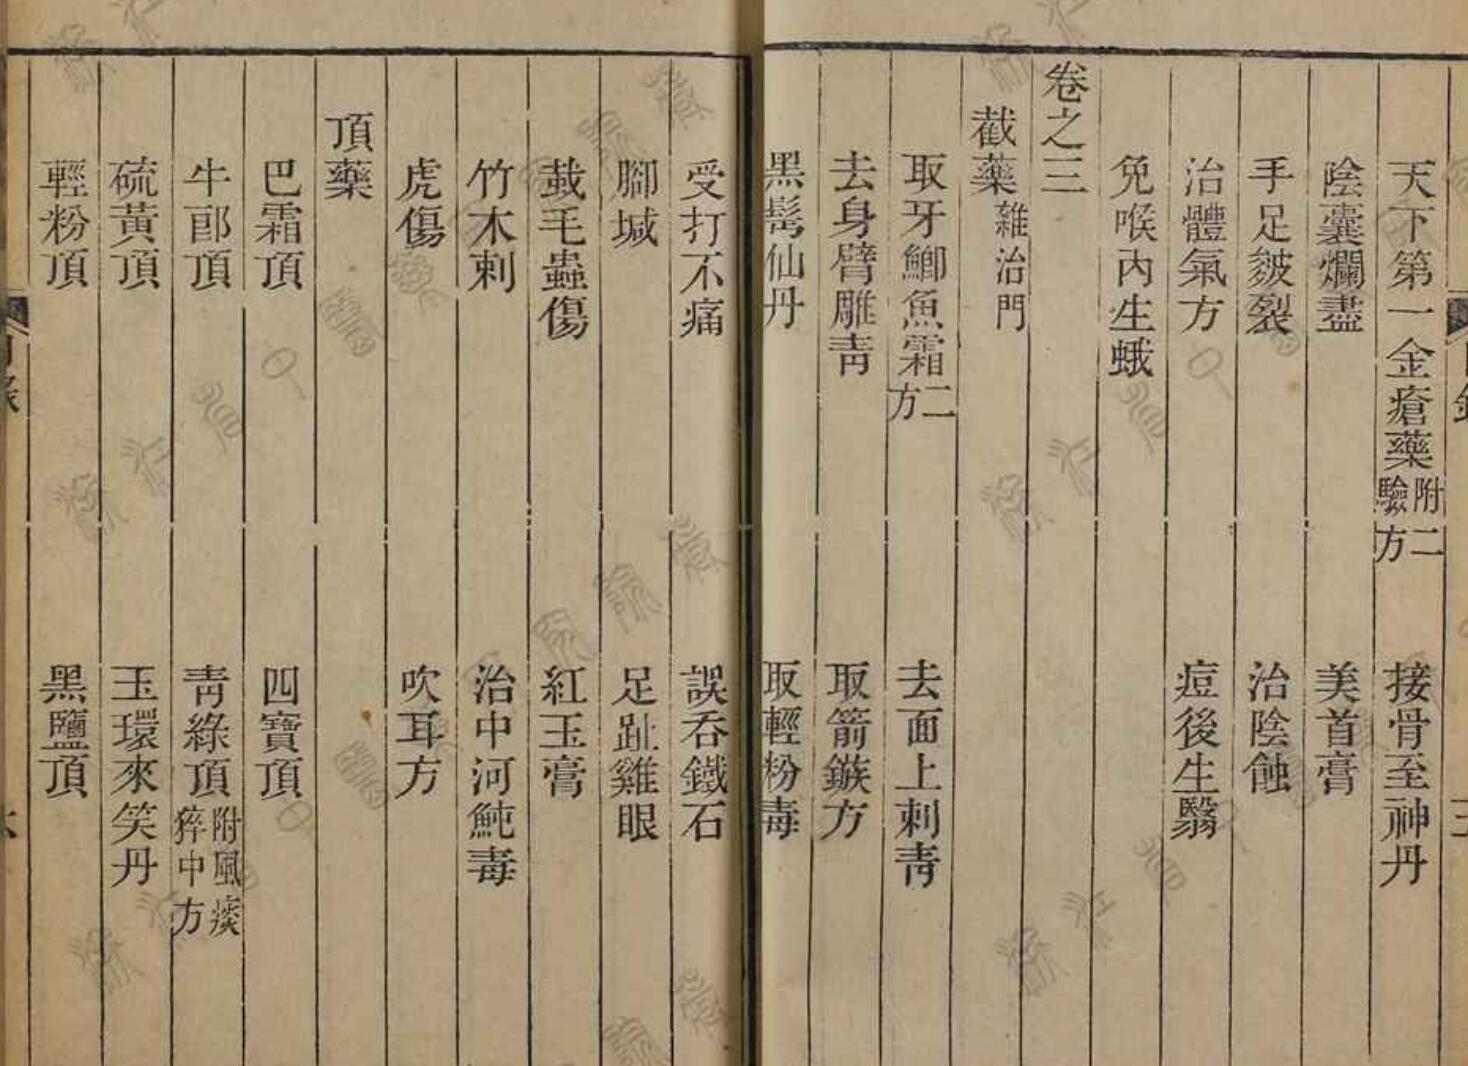 天下第一金瘡藥附二驗方 接骨至神丹
陰囊爛盡 美首膏
手足皴裂 治陰蝕
治體氣方 痘後生翳
免喉內生蛾
卷之三
截藥雜治門
取牙鯽魚霜二方 去面上刺靑
去身臂雕靑 取箭鏃方
黑髩仙丹 取輕粉毒
受打不痛 誤吞鐵石
腳墄 足趾雞眼
蛓毛蟲傷 紅玉膏
竹木刺 治中河魨毒
虎傷 吹耳方
頂藥
巴霜頂 四寶頂
牛郎頂 靑綠頂附風痰猝中方
硫黃頂 玉環來笑丹
輕粉頂 黑鹽頂
目錄